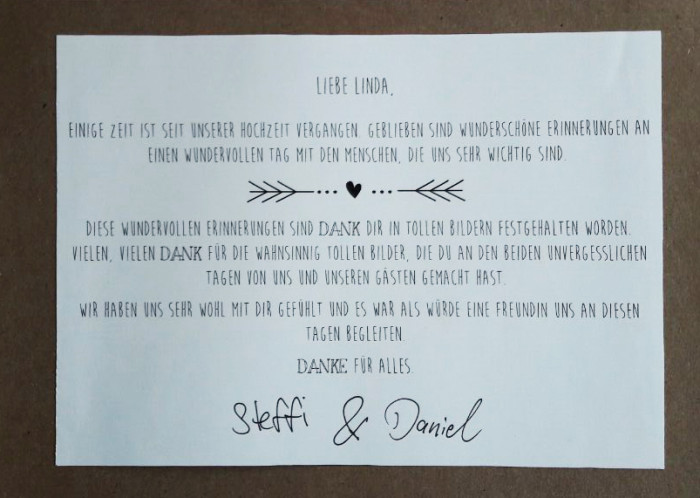 LIEBE LINDA,
EINIGE ZEIT IST SEIT UNSERER HOCHZEIT VERGANGEN. GEBLIEBEN SIND WUNDERSCHÖNE ERINNERUNGEN AN
EINEN WUNDERVOLLEN TAG MIT DEN MENSCHEN, DIE UNS SEHR WICHTIG SIND.
DIESE WUNDERVOLLEN ERINNERUNGEN SIND DANK DIR IN TOLLEN BILDERN FESTGEHALTEN WORDEN.
VIELEN, VIELEN DANK FÜR DIE WAHNSINNIG TOLLEN BILDER, DIE DU AN DEN BEIDEN UNVERGESSLICHEN
TAGEN VON UNS UND UNSEREN GÄSTEN GEMACHT HAST.
WIR HABEN UNS SEHR WOHL MIT DIR GEFÜHLT UND ES WAR ALS WÜRDE EINE FREUNDIN UNS AN DIESEN
TAGEN BEGLEITEN.
DANKE FÜR ALLES.
Steffi & Daniel